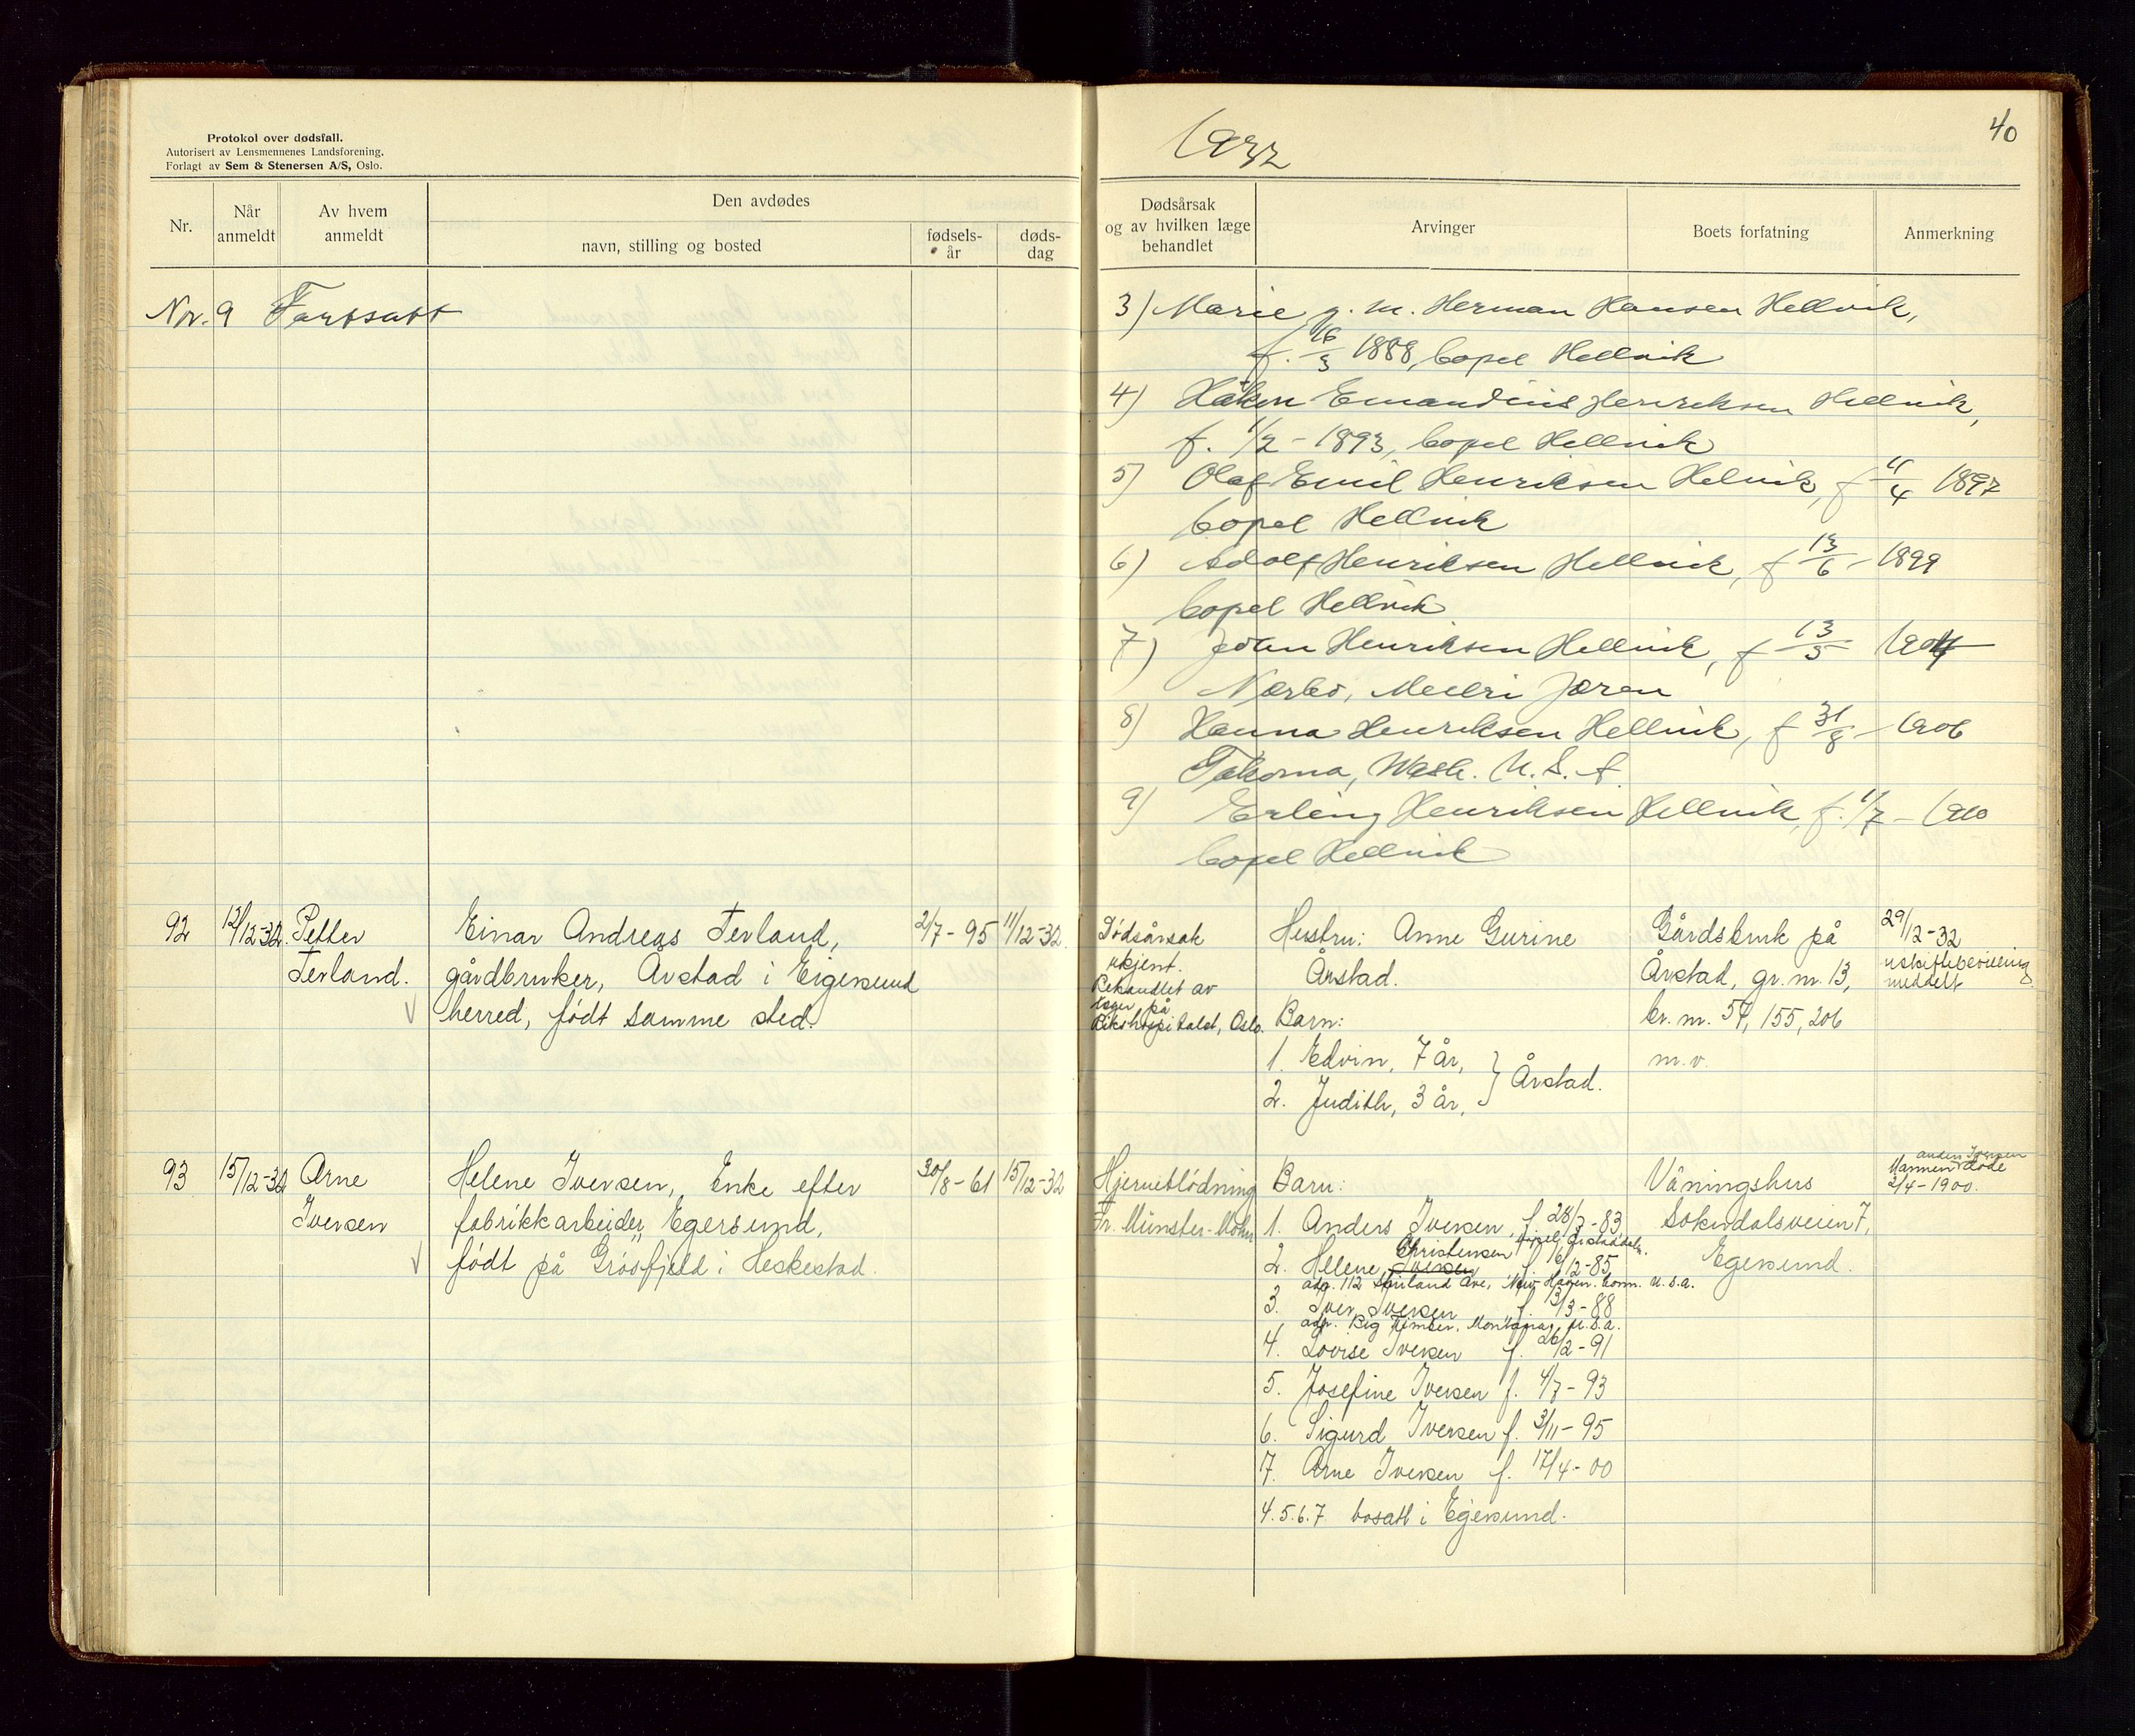 Protokol over dødsfall.
Autorisert av Lensmennenes Landsforening.
Forlagt av Sem & Stenersen A/S, Oslo.
Nr.
Når anmeldt
Av hvem anmeldt
Den avdødes
navn, stilling og bosted
fødsels-år
døds-dag
Nr. 9 Fortsatt
92
12/12-32.
Petter
Terland.
Einar Andreas Terland,
gårdbruker, Årstad i Eigersund
herred, født samme sted.
2/7-95
11/12-32.
93
15/12-32
Arne
Iversen
Helene Iversen, Enke efter
fabrikkarbeider, Egersund,
født på Gråsfjeld i Heskestad.
30/8-61
15/12-32
1932
40
Dødsårsak
og av hvilken læge
behandlet
Arvinger
Boets forfatning
Anmerkning
3) Marie g. m. Herman Hansen Hellvik,
f. 16/3 1888, Hellvik
4) Håkon Henriksen Hellvik,
f. 1/2-1893, Hellvik
5) Olaf Emil Henriksen Helvik, f 11/4 1897
Hellvik
6) Adolf Henriksen Hellvik, f 13/6-1899
Hellvik
7) Johan Henriksen Hellvik, f 13/5 1904
Nærbø, Jæren
8) Hanna Henriksen Hellvik, f 31/8-1906
Takoma, Wash. U.S.A
9) Erling Henriksen Hellvik, f. 1/7-1910
Hellvik
Dødsårsak
ukjent.
Behandlet av
læger på
Rikshospitalet, Oslo.
Hustru: Anne Gurine
Årstad.
Barn:
1. Edvin, 7 år,
2. Judith, 3 år, } Årstad.
Gårdsbruk på
Årstad, gr. nr. 13,
br. nr. 54, 155, 206
m.v.
29/12-32
uskiftebevilling
meddelt
Hjerneblødning
Dr. Münster-Mohn
Barn:
1. Anders Iversen, f. 28/7-83
Årstaddalen.
2. Helene Iversen Christensen f. 16/12-85
adr. 112 Ave, New Haven. Conn. U.S.A.
3. Iver Iversen f. 13/3-88
adr. Big Timber, Montana, U.S.A.
4. Lovise Iversen f. 26/2-91
5. Josefine Iversen f. 4/7-93
6. Sigurd Iversen f. 3/11-95
7. Arne Iversen f. 17/4-00
4.5.6.7 bosatt i Egersund.
Våningshus
Sokndalsveien 7,
Egersund.
Anders Iversen
Mannen døde
2/4-1900.